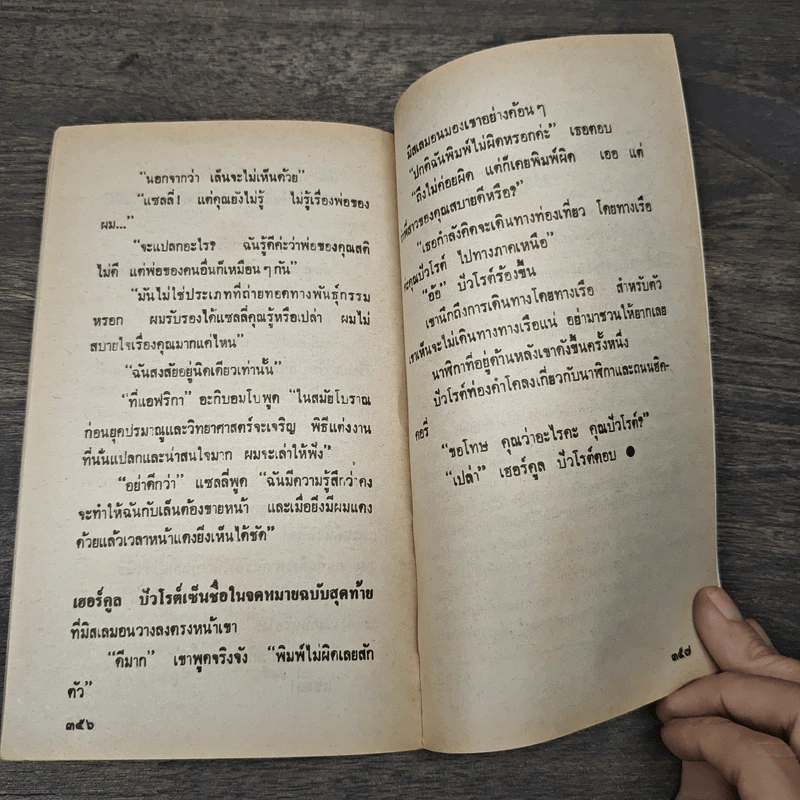 "นอกจากว่า เล็นจะไม่เห็นด้วย"
"แซลลี่! แต่คุณยังไม่รู้ ไม่รู้เรื่องพ่อของ
ผม..."
"จะแปลกอะไร? ฉันรู้ดีค่ะว่าพ่อของคุณสติ
ไม่ดี แต่พ่อของคนอื่นก็เหมือน ๆ กัน"
"มันไม่ใช่ประเภทที่ถ่ายทอดทางพันธุ์กรรม
หรอก ผมรับรองได้แซลลี่คุณรู้หรือเปล่า ผมไม่
สบายใจเรื่องคุณมากแค่ไหน"
"ฉันสงสัยอยู่นิดเดียวเท่านั้น"
"ที่แอฟริกา" อะกิบอมโบพูด "ในสมัยโบราณ
ก่อนยุคปรมาณูและวิทยาศาสตร์จะเจริญ พิธีแต่งงาน
ที่นั่นแปลกและน่าสนใจมาก ผมจะเล่าให้ฟัง"
"อย่าดีกว่า" แซลลี่พูด "ฉันมีความรู้สึกว่าคง
จะทำให้ฉันกับเล็นต้องขายหน้า และเมื่อยิ่งมีผมแดง
ด้วยแล้วเวลาหน้าแดงยิ่งเห็นได้ชัด"
เฮอร์คูล ปัวโรต์เซ็นชื่อในจดหมายฉบับสุดท้าย
ที่มิสเลมอนวางลงตรงหน้าเขา
"ดีมาก" เขาพูดจริงจัง "พิมพ์ไม่ผิดเลยสัก
ตัว"
๓๕๖
มิสเลมอนมองเขาอย่างค้อน ๆ
"ปกติฉันพิมพ์ไม่ผิดหรอกค่ะ" เธอตอบ
"ถึงไม่ค่อยผิด แต่ก็เคยพิมพ์ผิด เออ แต่
พี่สาวของคุณสบายดีหรือ?"
"เธอกำลังคิดจะเดินทางท่องเที่ยว โดยทางเรือ
คะคุณปัวโรต์ ไปทางภาคเหนือ"
"อ้อ" ปัวโรต์ร้องขึ้น
เขานึกถึงการเดินทางโดยทางเรือ สำหรับตัว
เขาเห็นจะไม่เดินทางทางเรือแน่ อย่ามาชวนให้ยากเลย
นาฬิกาที่อยู่ด้านหลังเขาดังขึ้นครั้งหนึ่ง
ปัวโรต์ท่องคำโคลงเกี่ยวกับนาฬิกาและถนนฮิค-
คอรี่
"ขอโทษ คุณว่าอะไรคะ คุณปัวโรต์?"
"เปล่า" เฮอร์คูล ปัวโรต์ตอบ ●
๓๕๗